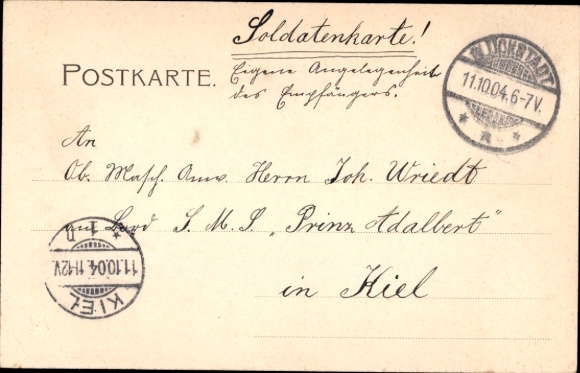 Soldatenkarte!
POSTKARTE.
Eigene Angelegenheit
des Empfängers.
GLÜCKSTADT
11.10.04.6-7V.
An
Ob. Masch. Anw. Herrn Joh. Wriedt
an Bord S. M. S. „Prinz Adalbert"
in Kiel
KIEL
11.10.04.11-12V.
1 n